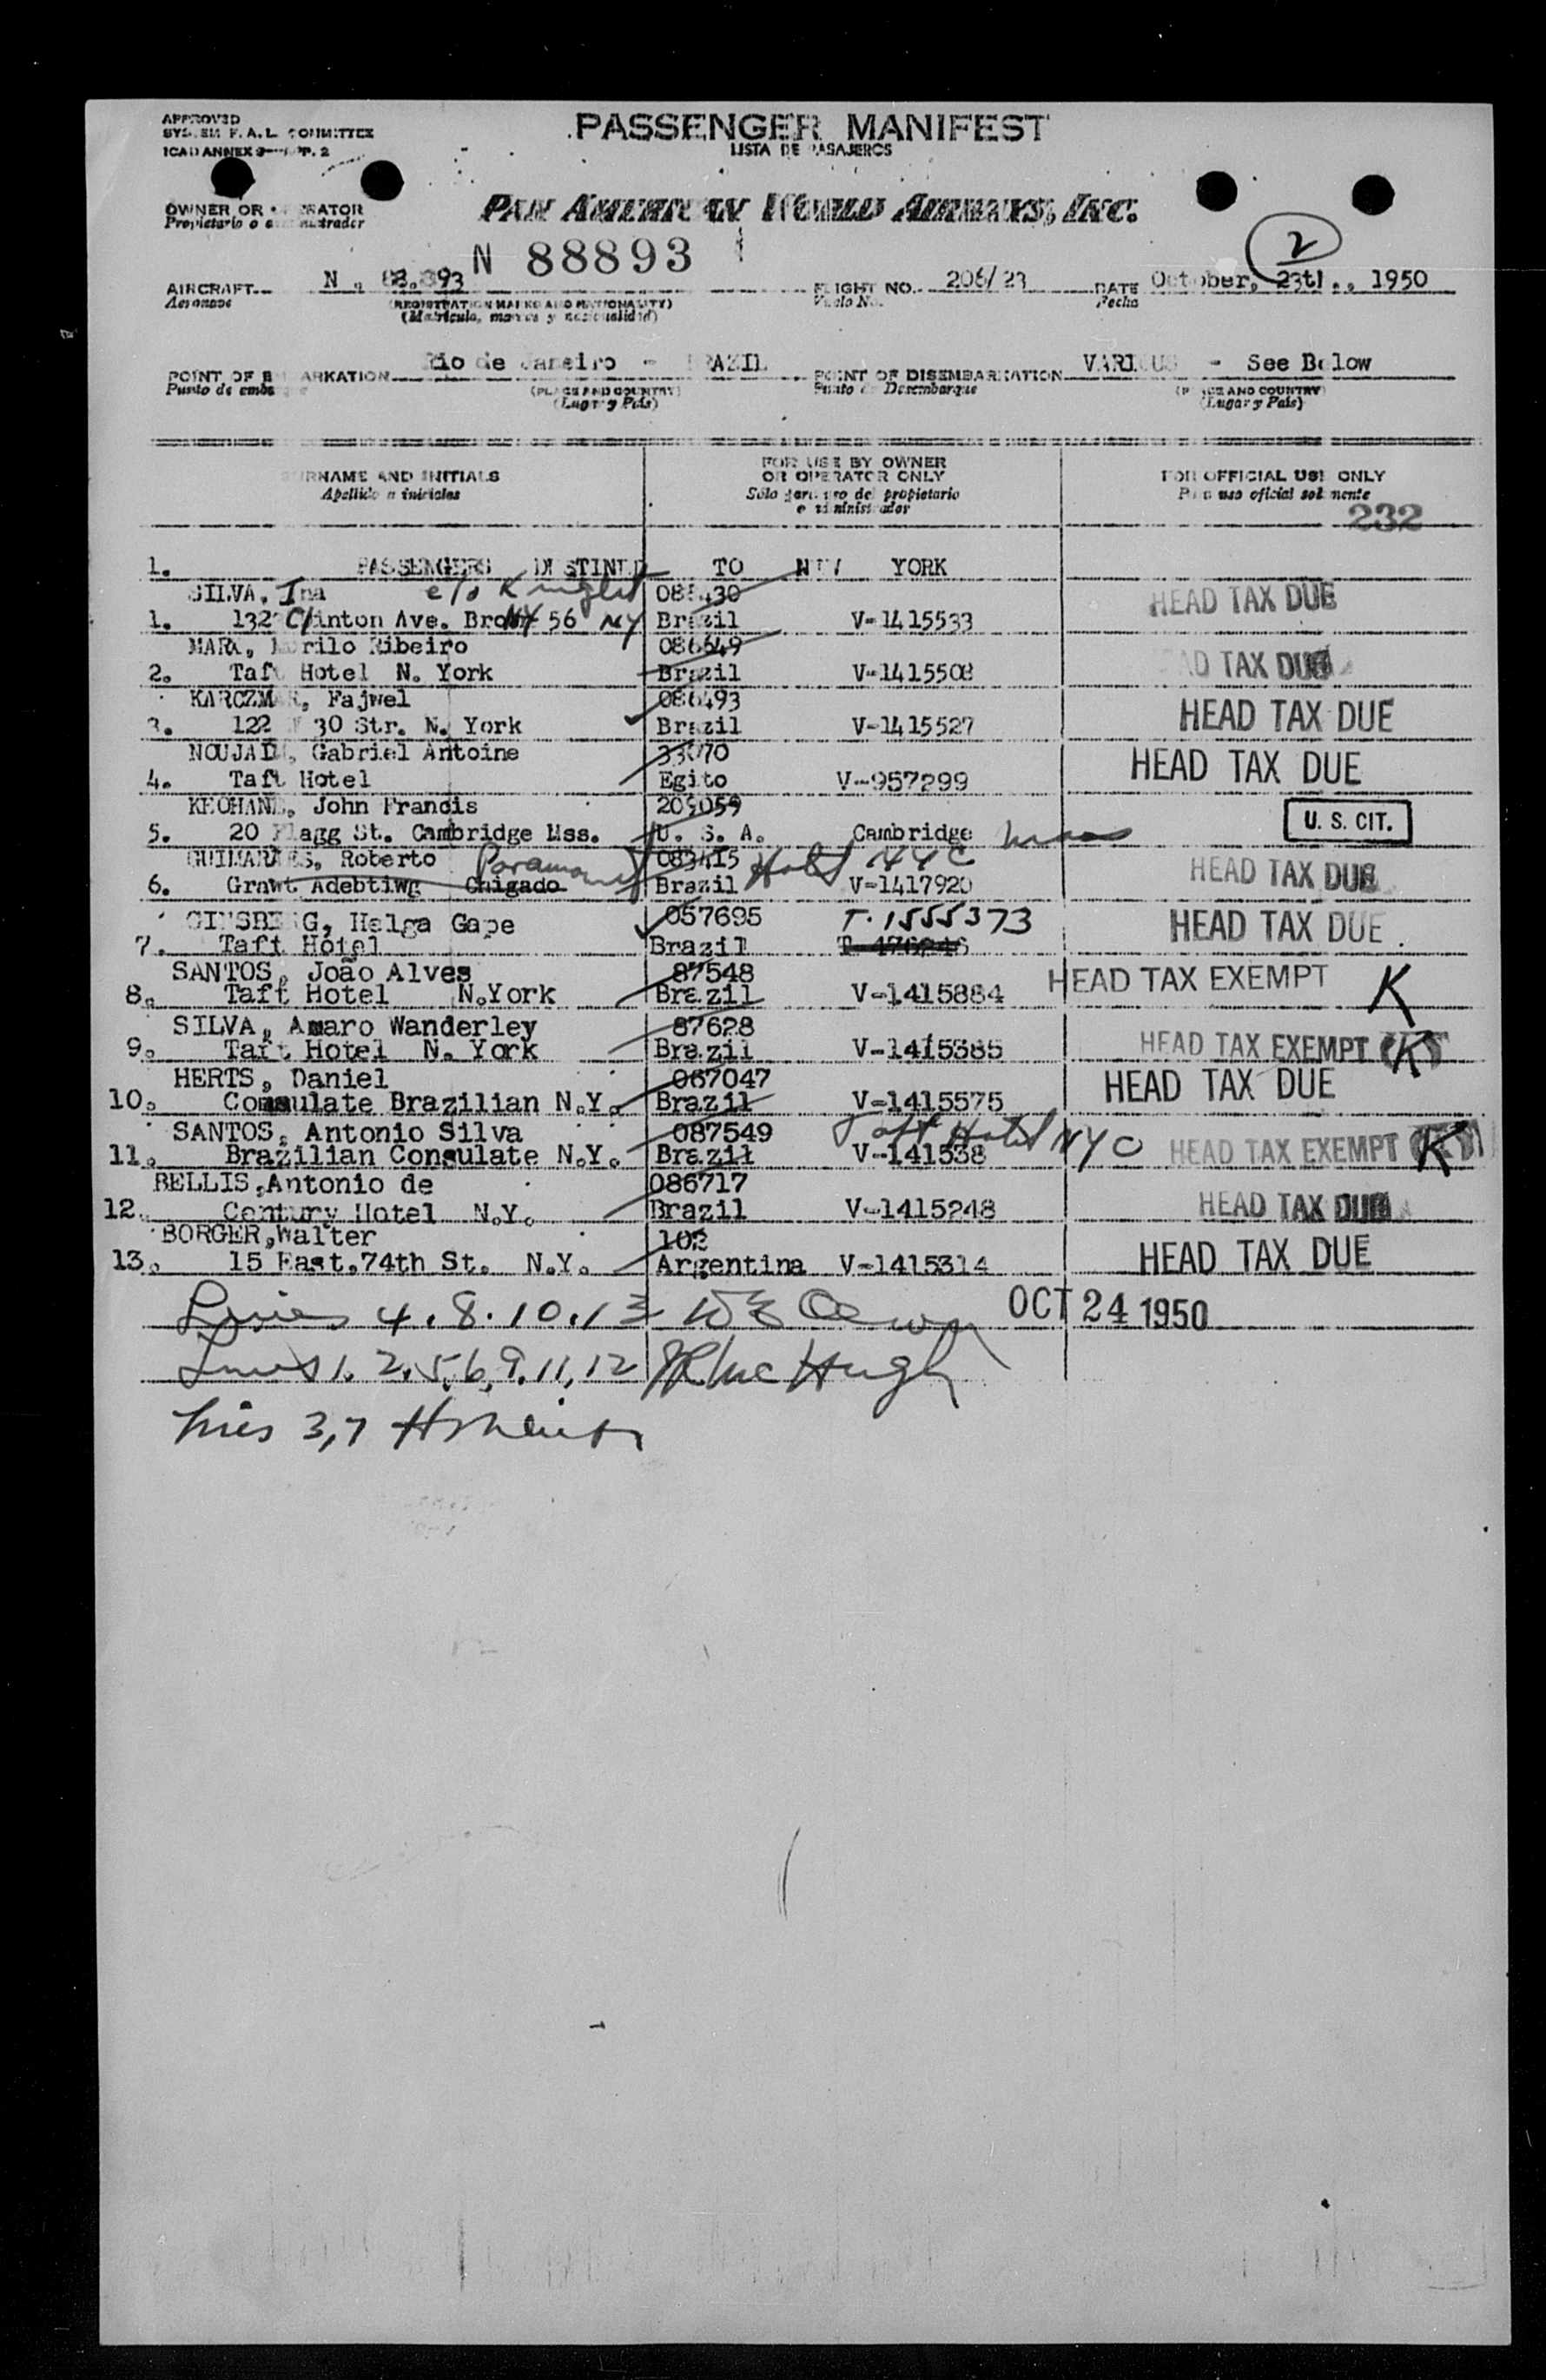 APPROVED
SYSTEM F.A.L. COMMITTEE
ICAO ANNEX 9 APP. 2
PASSENGER MANIFEST
LISTA DE PASAJEROS
OWNER OR OPERATOR
Propietario o administrador
PAN AMERICAN WORLD AIRWAYS, INC.
N 88893
2
AIRCRAFT N . 88.893 FLIGHT NO. 206/23 DATE October, 23th., 1950
Aeronave (REGISTRATION MARKS AND NATIONALITY) Vuelo No. Fecha
(Matricula, marcas y nacionalidad)
POINT OF EMBARKATION Rio de Janeiro - BRAZIL POINT OF DISEMBARKATION VARIOUS - See Below
Punto de embarque (PLACE AND COUNTRY) Punto de Desembarque (PLACE AND COUNTRY)
(Lugar y País) (Lugar y País)
SURNAME AND INITIALS FOR USE BY OWNER OR OPERATOR ONLY FOR OFFICIAL USE ONLY
Apellido e iniciales Sólo para uso del propietario o administrador Para uso oficial solamente
232
1. PASSENGERS DESTINED TO NEW YORK
SILVA, Ina c/o Knight 08 430 HEAD TAX DUE
1. 132 Clinton Ave. Bronx 56 NY Brazil V-1415533
MARX, rilo Ribeiro 086649
2. Taft Hotel N. York Brazil V-1415508 HEAD TAX DUE
KARCZMAR, Fajwel 086493
3. 122 W 30 Str. N. York Brazil V-1415527 HEAD TAX DUE
NOUJAIM, Gabriel Antoine 33070
4. Taft Hotel Egito V-957299 HEAD TAX DUE
KEOHANE, John Francis 209059
5. 20 Flagg St. Cambridge Mss. U. S. A. Cambridge Mass U. S. CIT.
GUIMARAES, Roberto Paramount 083415 Hotel NYC
6. Grawt Adebtiwg Chigado Brazil V-1417920 HEAD TAX DUE
GINSBERG, Helga Gape 057695 T-1555373
7. Taft Hotel Brazil T-476246 HEAD TAX DUE
SANTOS, João Alves 87548
8. Taft Hotel N.York Brazil V-1415884 HEAD TAX EXEMPT K
SILVA, Amaro Wanderley 87628
9. Taft Hotel N. York Brazil V-1415385 HEAD TAX EXEMPT K
HERTS, Daniel 067047
10. Consulate Brazilian N.Y. Brazil V-1415575 HEAD TAX DUE
SANTOS, Antonio Silva 087549 Taft Hotel NYC
11. Brazilian Consulate N.Y. Brazil V-141538 HEAD TAX EXEMPT K
BELLIS,Antonio de 086717
12. Century Hotel N.Y. Brazil V-1415248 HEAD TAX DUE
BORGER,Walter 102
13. 15 East.74th St. N.Y. Argentina V-1415314 HEAD TAX DUE
Lines 4.8.10.13 OCT 24 1950
Lines 1.2,5,6,9,11,12 McHugh
Lines 3,7